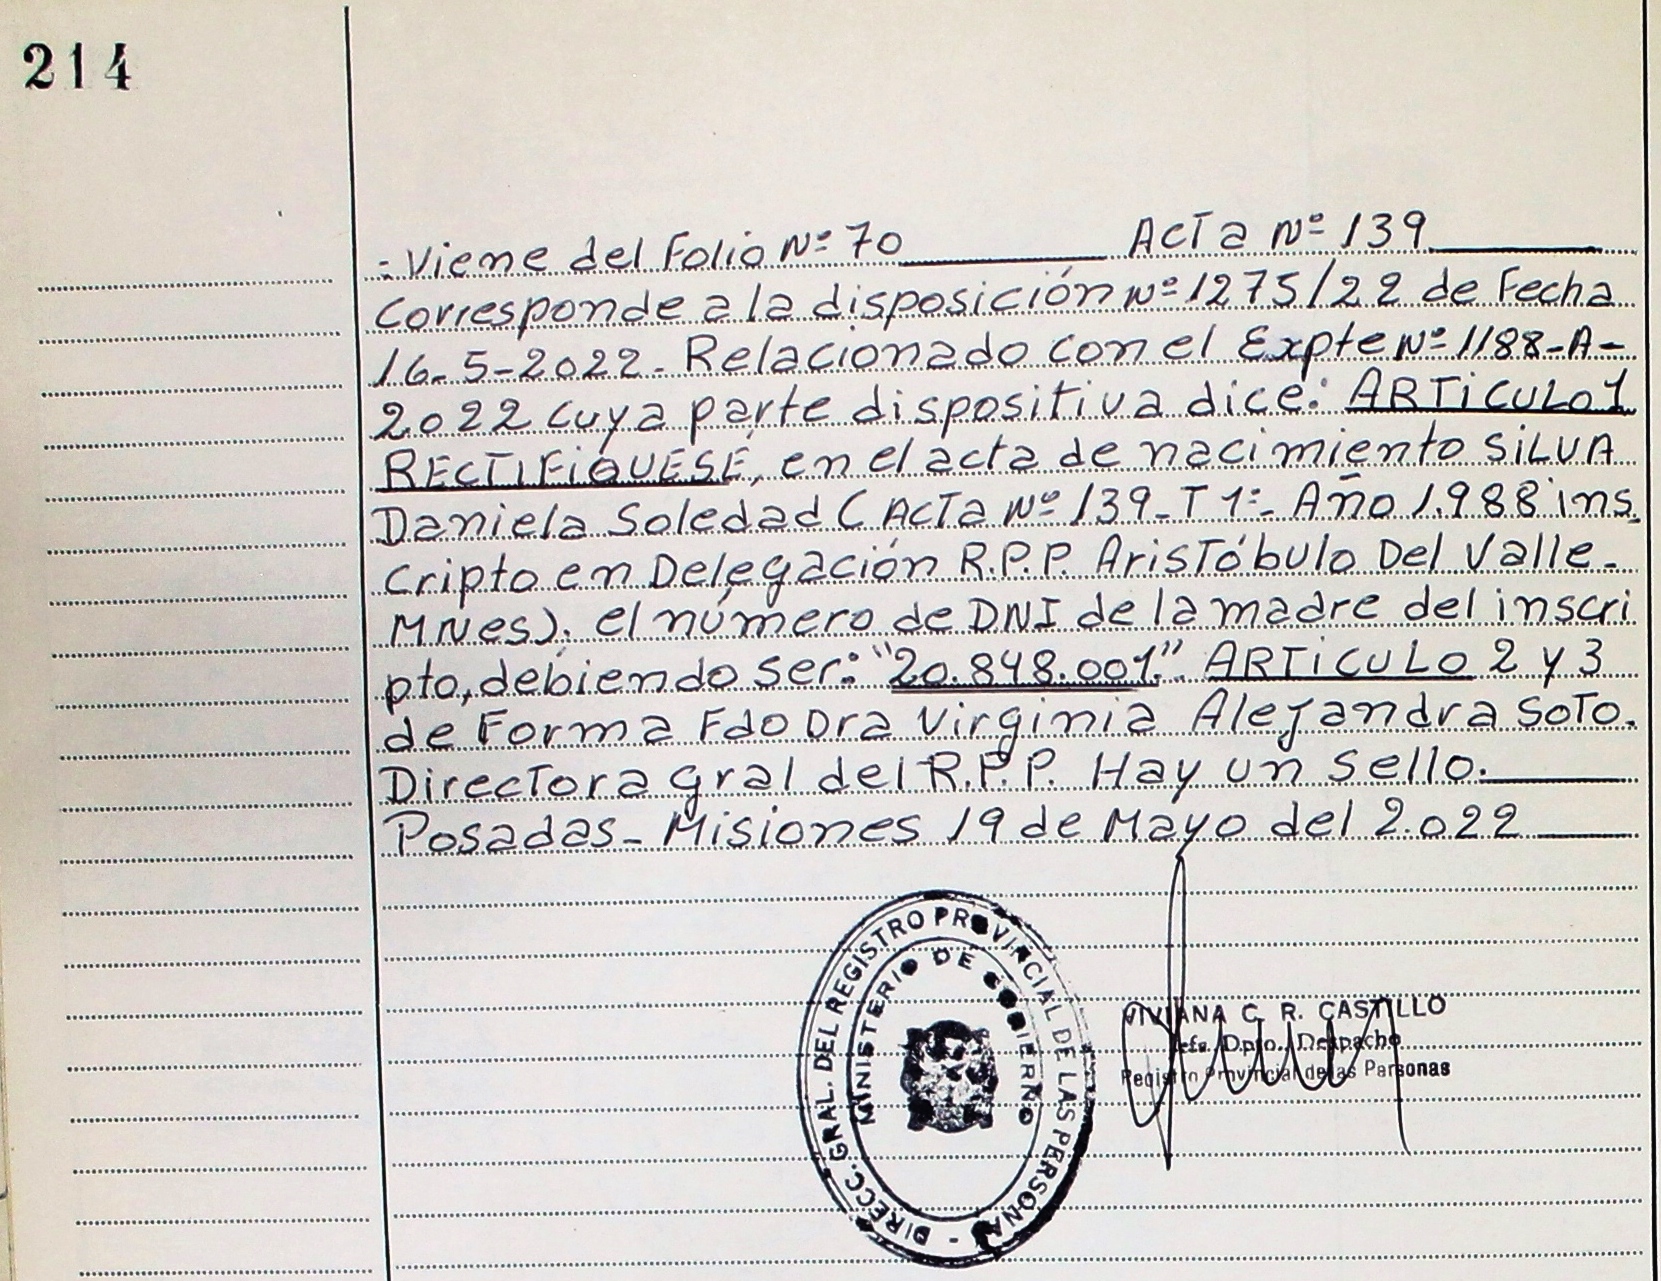 214
-Viene del Folio Nº 70 Acta Nº 139
Corresponde a la disposición Nº 1275/22 de Fecha
16-5-2022. Relacionado con el Expte Nº 1188-A-
2022 cuya parte dispositiva dice: ARTICULO 1
RECTIFIQUESE, en el acta de nacimiento SILVA
Daniela Soledad ( Acta Nº 139-T 1º- Año 1.988 ins
cripto en Delegación R.P.P. Aristóbulo Del Valle-
MNes). el número de DNI de la madre del inscri
pto, debiendo ser: "20.848.001". ARTICULO 2 y 3
de Forma Fdo Dra Virginia Alejandra Soto.
Directora gral del R.P.P. Hay un sello.
Posadas- Misiones 19 de Mayo del 2.022
DIRECC. GRAL. DEL REGISTRO PROVINCIAL DE LAS PERSONAS -
MINISTERIO DE GOBIERNO
VIVIANA C. R. CASTILLO
Jefa. Dpto. Despacho
Registro Provincial de las Personas